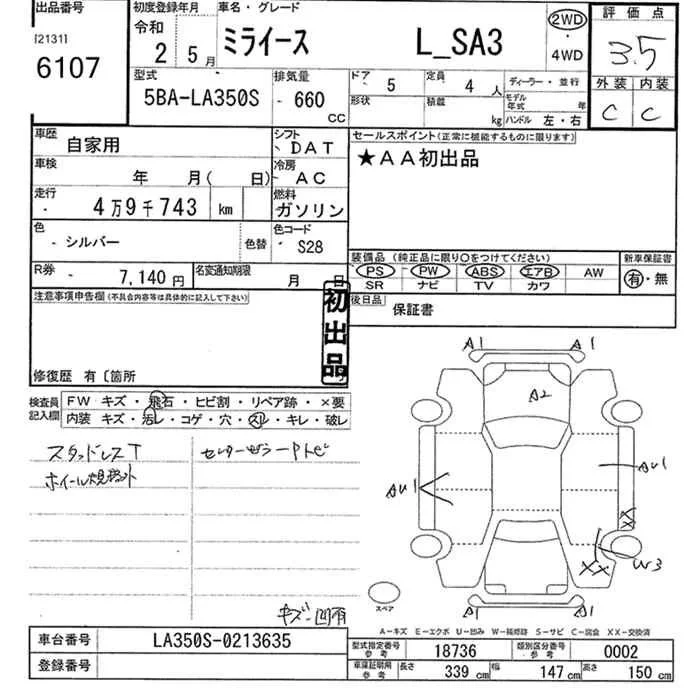 出品番号 初度登録年月 車名・グレード 評価点
[2131] 令和 ミライース L_SA3 2WD 3.5
6107 2 5月 4WD
型式 排気量 ドア 5 定員 4人 ディーラー・並行 外装 内装
5BA-LA350S - 660 cc 形状 積載 kg モデル年式 年 ハンドル 左・右 C C
車歴 自家用 シフト DAT セールスポイント(正常に機能するものに限ります)
車検 年 月( 日) 冷房 AC ★AA初出品
走行 4万9千743 km 燃料 ガソリン
色 - シルバー 色替 色コード S28
装備品(純正品に限り○をつけてください) 新車保証書
R券 - 7,140円 名変通知期限 月 日 PS PW ABS エアB AW 有・無
SR ナビ TV カワ
注意事項申告欄(不具合内容等は具体的に記入して下さい) 初出品 後日品 保証書
修復歴 有〔箇所
検査員記入欄 FW キズ・飛石・ヒビ割・リペア跡・×要
内装 キズ・汚レ・コゲ・穴・スレ・キレ・破レ
スタッドレスT
ホイール規格外
キズ・凹有
A1 A1
A2
AU1 AU1
XX
XX W3
A1 A1
スペア
A-キズ E-エクボ U-凹み W-補修跡 S-サビ C-腐食 XX-交換済
車台番号 LA350S-0213635 型式指定番号参考 18736 類別区分番号参考 0002
登録番号 車庫証明用参考 長さ 339cm 幅 147cm 高さ 150cm